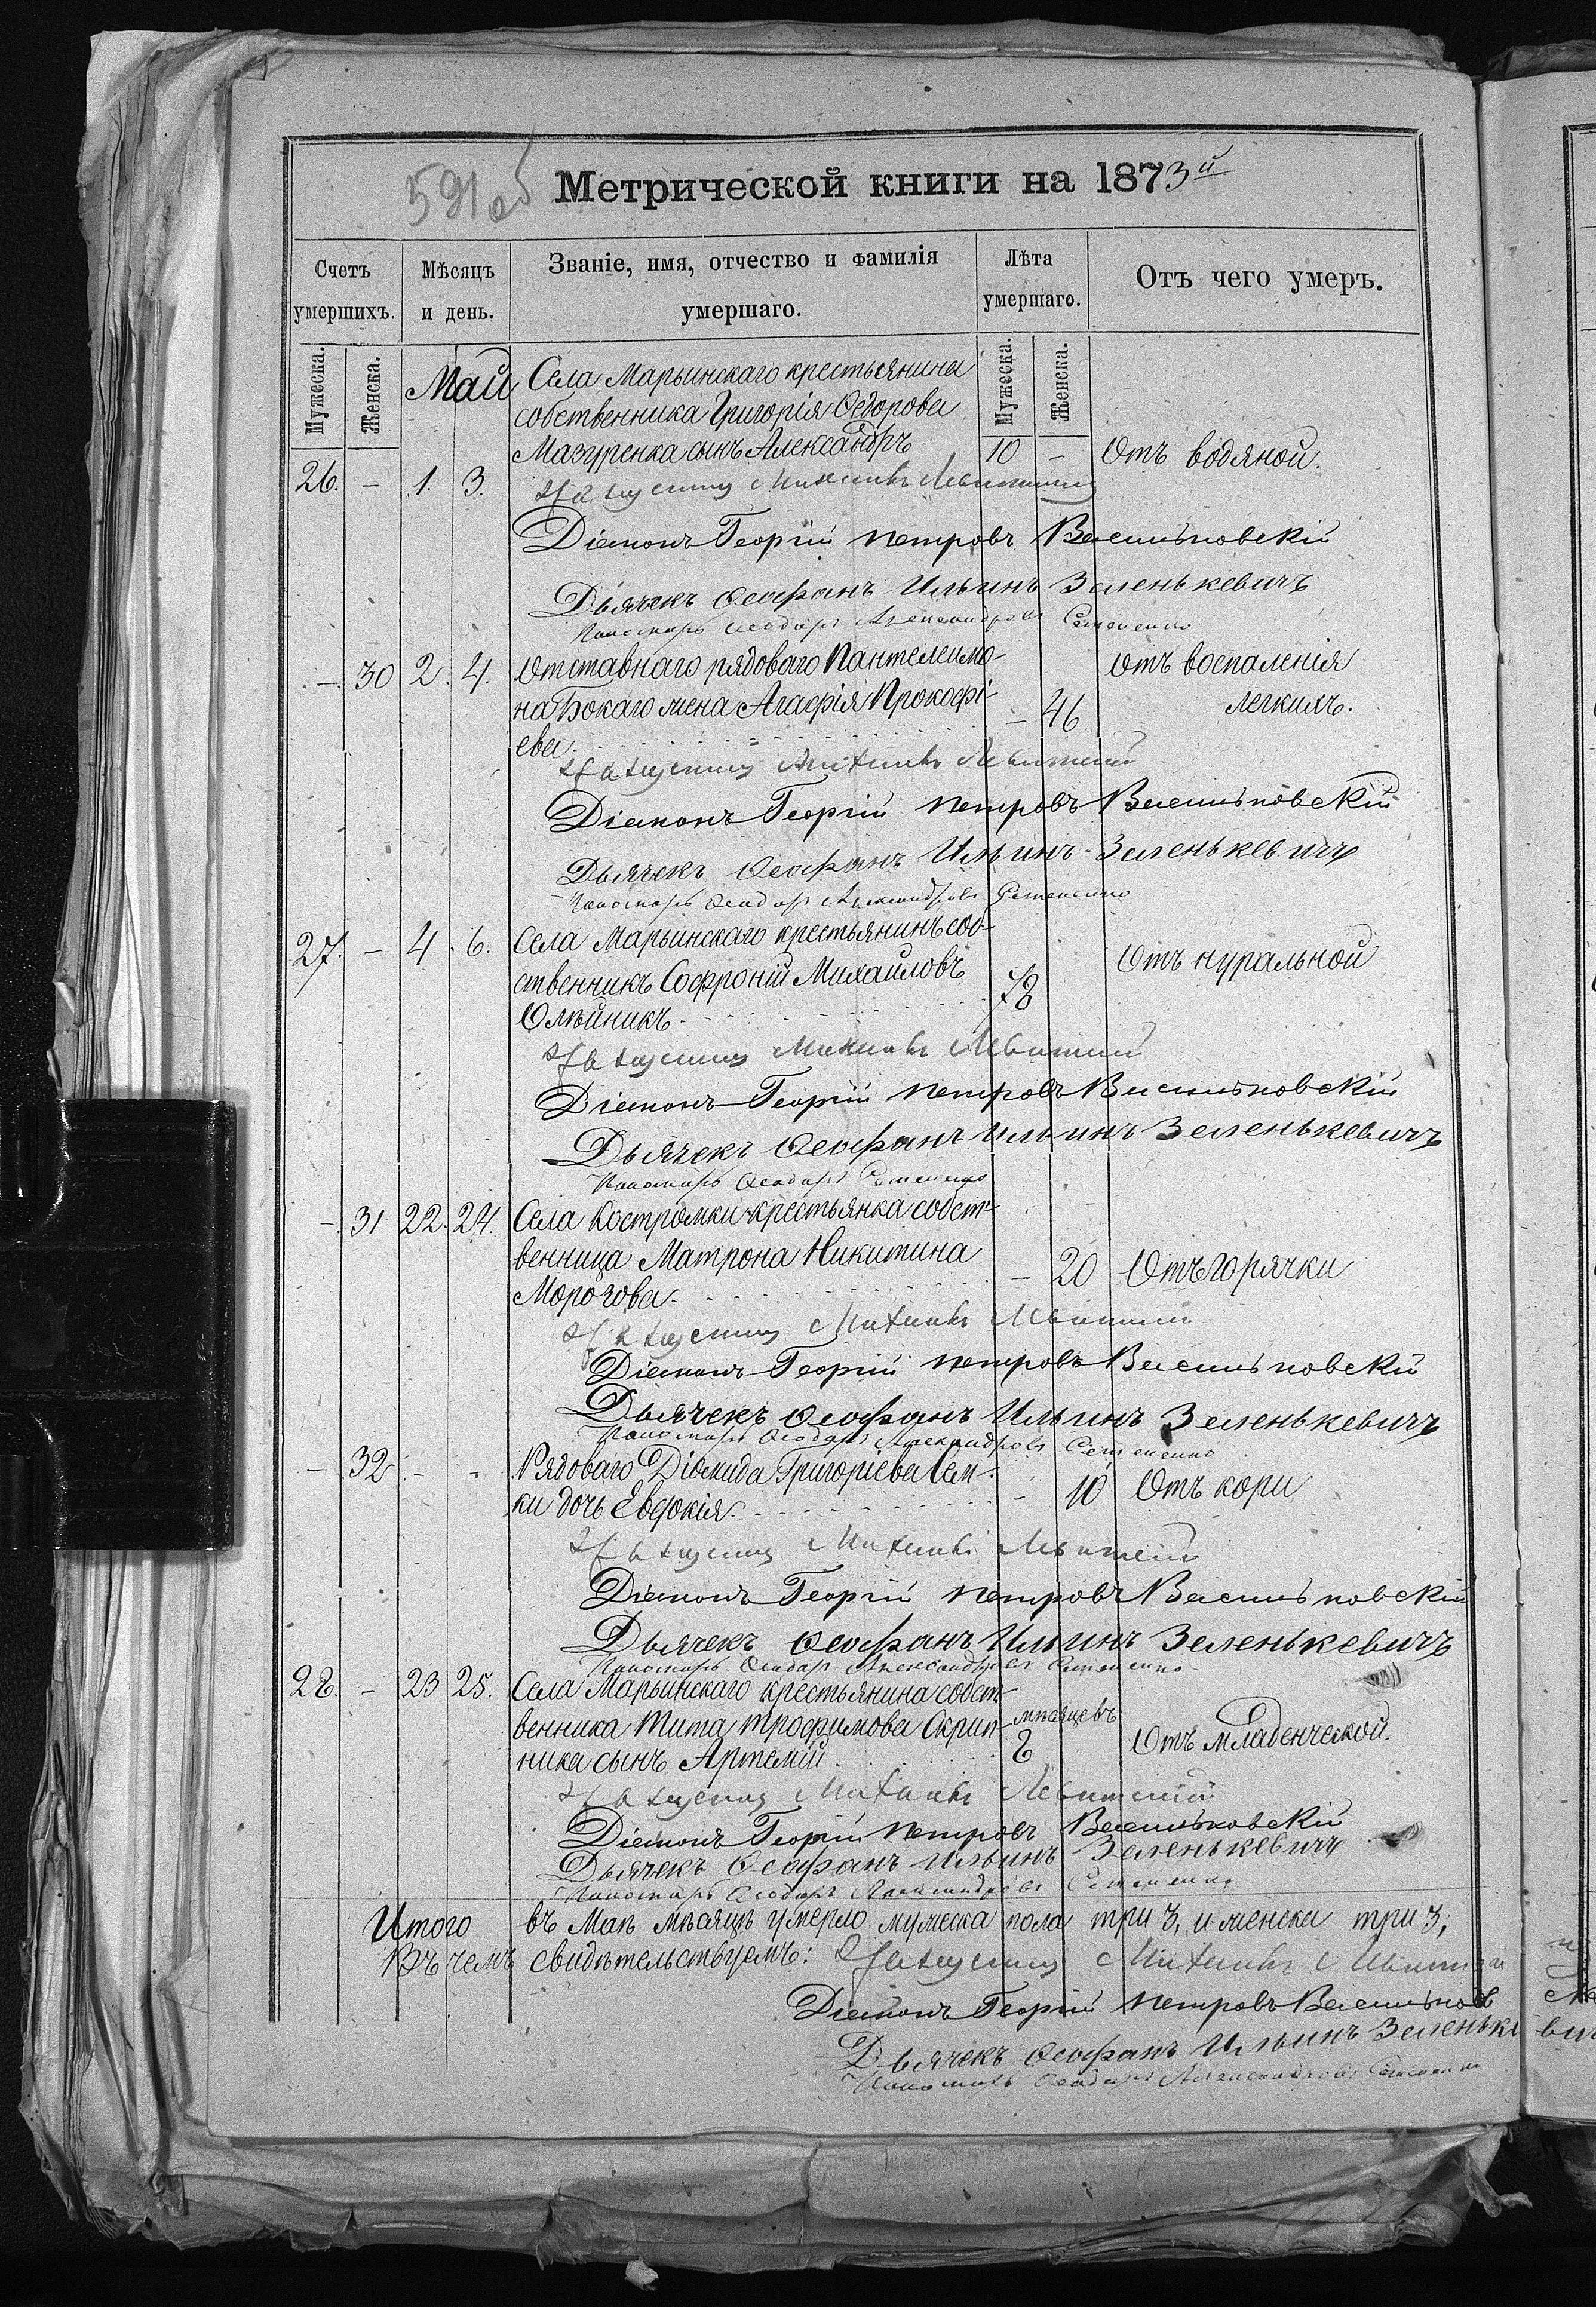 591 об
Метрической книги на 1873й
Счетъ
умершихъ.
Мѣсяцъ
и день.
Званіе, имя, отчество и фамилія
умершаго.
Лѣта
умершаго.
Отъ чего умеръ.
Мужеска.
Женска.
Мужеска.
Женска.
Май Села Марьинскаго крестьянина
собственника Григорія Ѳедорова
Мазуренка сынъ Александръ 10 - Отъ водяной.
26. - 1. 3.
Священникъ Михаилъ Левитскій
Діаконъ Георгій Петровъ Васильковскій
Дьячекъ Ѳеофанъ Ильинъ Зеленькевичъ
Пономарь Ѳеодоръ Александровъ
- 30 2. 4. Отставнаго рядоваго Пантелеимо- Отъ воспаленія
на Бокаго жена Агафія Прокофі- - 46 легкихъ.
ева.
Священникъ Михаилъ Левитскій
Діаконъ Георгій Петровъ Васильковскій
Дьячекъ Ѳеофанъ Ильинъ Зеленькевичъ
Пономарь Ѳеодоръ Александровъ
27. - 4. 6. Села Марьинскаго крестьянинъ соб-
ственникъ Софроній Михайловъ 78 Отъ нуральной
Олѣйникъ.
Священникъ Михаилъ Левитскій
Діаконъ Георгій Петровъ Васильковскій
Дьячекъ Ѳеофанъ Ильинъ Зеленькевичъ
Пономарь Ѳеодоръ
- 31 22. 24. Села Костромки крестьянка собст-
венница Матрона Никитина - 20 Отъ горячки
Морозова.
Священникъ Михаилъ Левитскій
Діаконъ Георгій Петровъ Васильковскій
Дьячекъ Ѳеофанъ Ильинъ Зеленькевичъ
Пономарь Ѳеодоръ Александровъ
- 32 - - Рядоваго Діомида Григоріева Сем-
ки дочь Евдокія. - 10 Отъ кори
Священникъ Михаилъ Левитскій
Діаконъ Георгій Петровъ Васильковскій
Дьячекъ Ѳеофанъ Ильинъ Зеленькевичъ
Пономарь Ѳеодоръ Александровъ
28. - 23 25. Села Марьинскаго крестьянина собст-
венника Тита Трофимова Скрип- мѣсяцевъ
ника сынъ Артемій. Отъ младенческой.
Священникъ Михаилъ Левитскій
Діаконъ Георгій Петровъ Васильковскій
Дьячекъ Ѳеофанъ Ильинъ Зеленькевичъ
Пономарь Ѳеодоръ Александровъ
Итого въ Маѣ мѣсяцѣ умерло мужеска пола три 3, и женска три 3;
Въ чемъ свидѣтельствуемъ: Священникъ Михаилъ Левитскій
Діаконъ Георгій Петровъ Васильков
Дьячекъ Ѳеофанъ Ильинъ Зеленьке
Пономарь Ѳеодоръ Александровъ